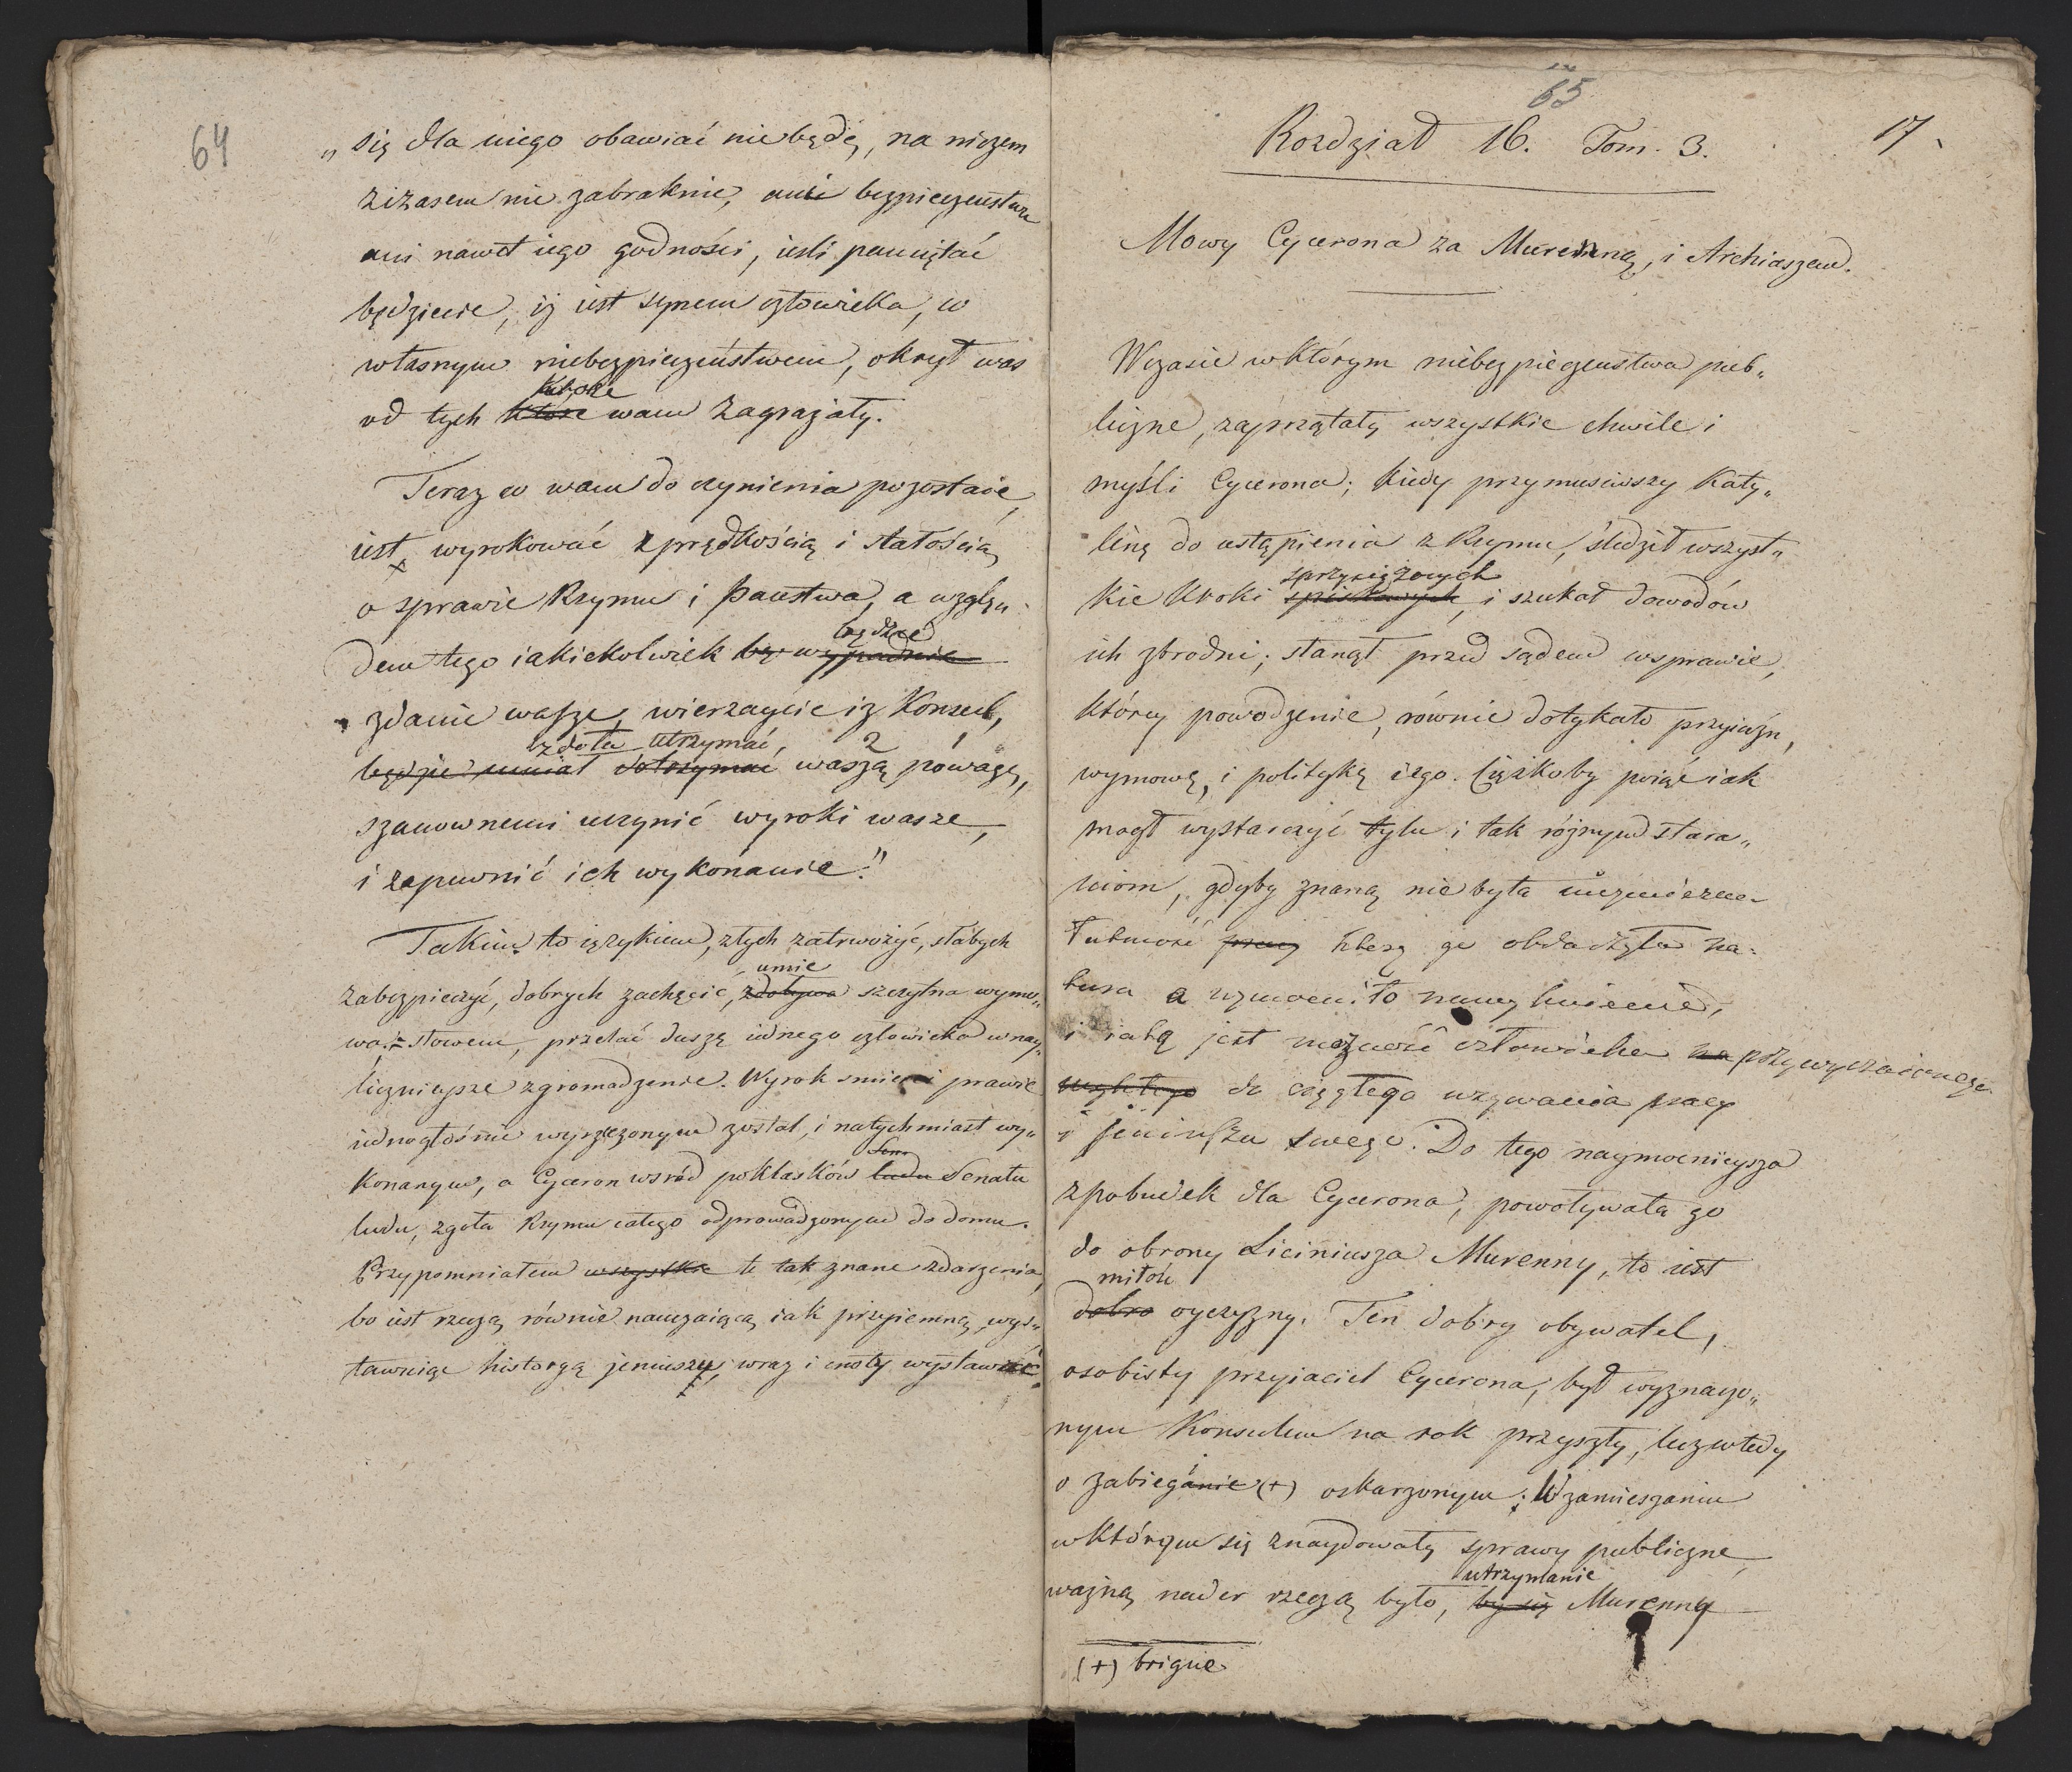 64
„się dla niego obawiać niebędę, na niczem
ziżasem nie zabraknie, ani bezpieczeństwu
ani nawet iego godności, iesli pamiętać
będziecie, iż iest synem człowieka, co
własnym niebezpieczeństwem, okrył was
które
od tych które wam zagrażały.
Teraz co wam do czynienia pozostaie,
iest, wyrokować z prędkością i stałością
o sprawie Rzymu i Państwa, a wzglę-
będzie
dem tego iakiekolwiek by wypadnie
zdanie wasze, wierzaycie iż Konsul,
zdoła utrzymać, 2 1
będzie umiał dotrzymać waszą powagę,
szanownemi uczynić wyroki wasze,
i zapewnić ich wykonanie."
Takim to ięzykiem, złych zatrwożyć, słabych
umie
zabezpieczyć, dobrych zachęcić, zdobywa szczytna wymo„
wa: słowem, przelać duszę iednego człowieka w nay„
licznieysze zgromadzenie. Wyrok smierci prawie
iednogłośnie wyrzeczonym został, i natychmiast wy„
Sen.
konanym, a Cyceron wsród poklasków ludu Senatu
ludu, zgoła Rzymu całego odprowadzonym do domu.
Przypomniałem wszystkie te tak znane zdarzenia,
bo iest rzeczą równie nauczaiącą iak przyiemną, wys„
tawuiąc historyą jeniuszu, wraz i cnoty wystawiać.
65
17
Rozdział 16. Tom. 3.
Mowy Cycerona za Murenną, i Archiaszem.
Wczasie wktórym niebezpieczenstwa pub„
liczne, zaprzątały wszystkie chwile i
myśli Cycerona; kiedy przymusiwszy Katy„
linę do ustąpienia z Rzymu, śledził wszyst„
sprzysiężonych
kie kroki spiskowych, i szukał dowodów
ich zbrodni; stanął przed sądem wsprawie,
którey powodzenie, równie dotykało przyiaźn,
wymowę, i politykę iego. Ciężkoby poiąć iak
mogł wystarczyć tylu i tak różnym stara„
niom, gdyby znaną nie była niezmierna
łatwość pracy którą go obdarzyła na-
tura a wzmocniło nawyknienie,
i iaką jest możność człowieka na przywyczaionego
nagłego do ciągłego używania pracy
i jeniuszu swego. Do tego naymocnieysza
zpobudek dla Cycerona, powoływała go
do obrony Liciniusza Murenny, to iest
miłość
dobro oyczyzny. Ten dobry obywatel,
osobisty przyiaciel Cycerona, był wyznaczo„
nym Konsulem na rok przyszły, lecz wtedy
o zabieganie (+) oskarzonym; W zamieszaniu
wktórym się znaydowały sprawy publiczne,
utrzymanie
ważną nader rzeczą było, by się Murenny
(+) brigue